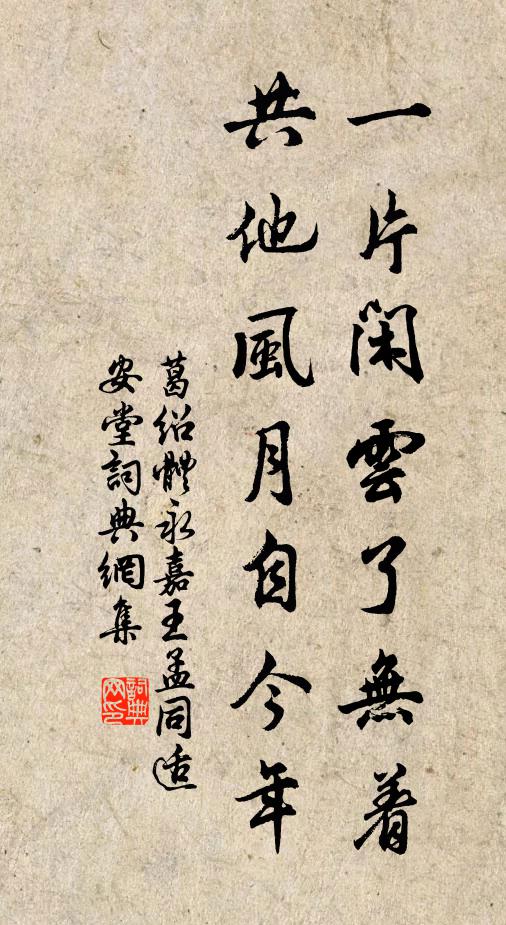 一片閑雲了無着
共他風月自今年
葛紹體永嘉王孟同适
安堂詞典網集
詞典網印